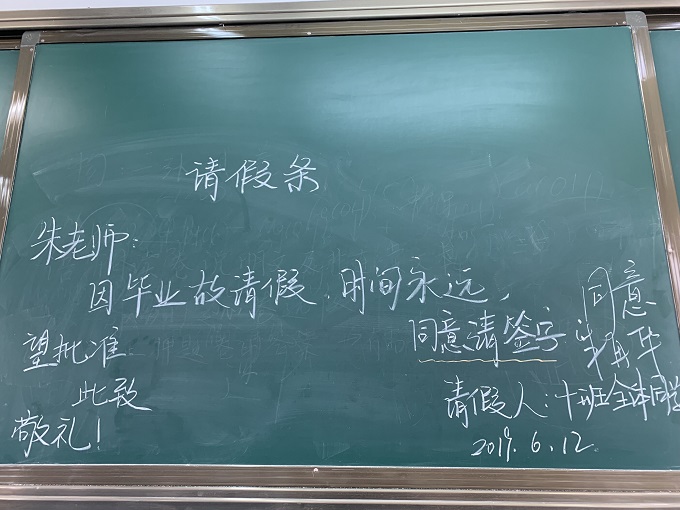 请假条
朱老师：
因毕业故请假，时间永远，
望批准
同意请签字
同意
此致
敬礼！
请假人：十班全体同学
2019.6.12.